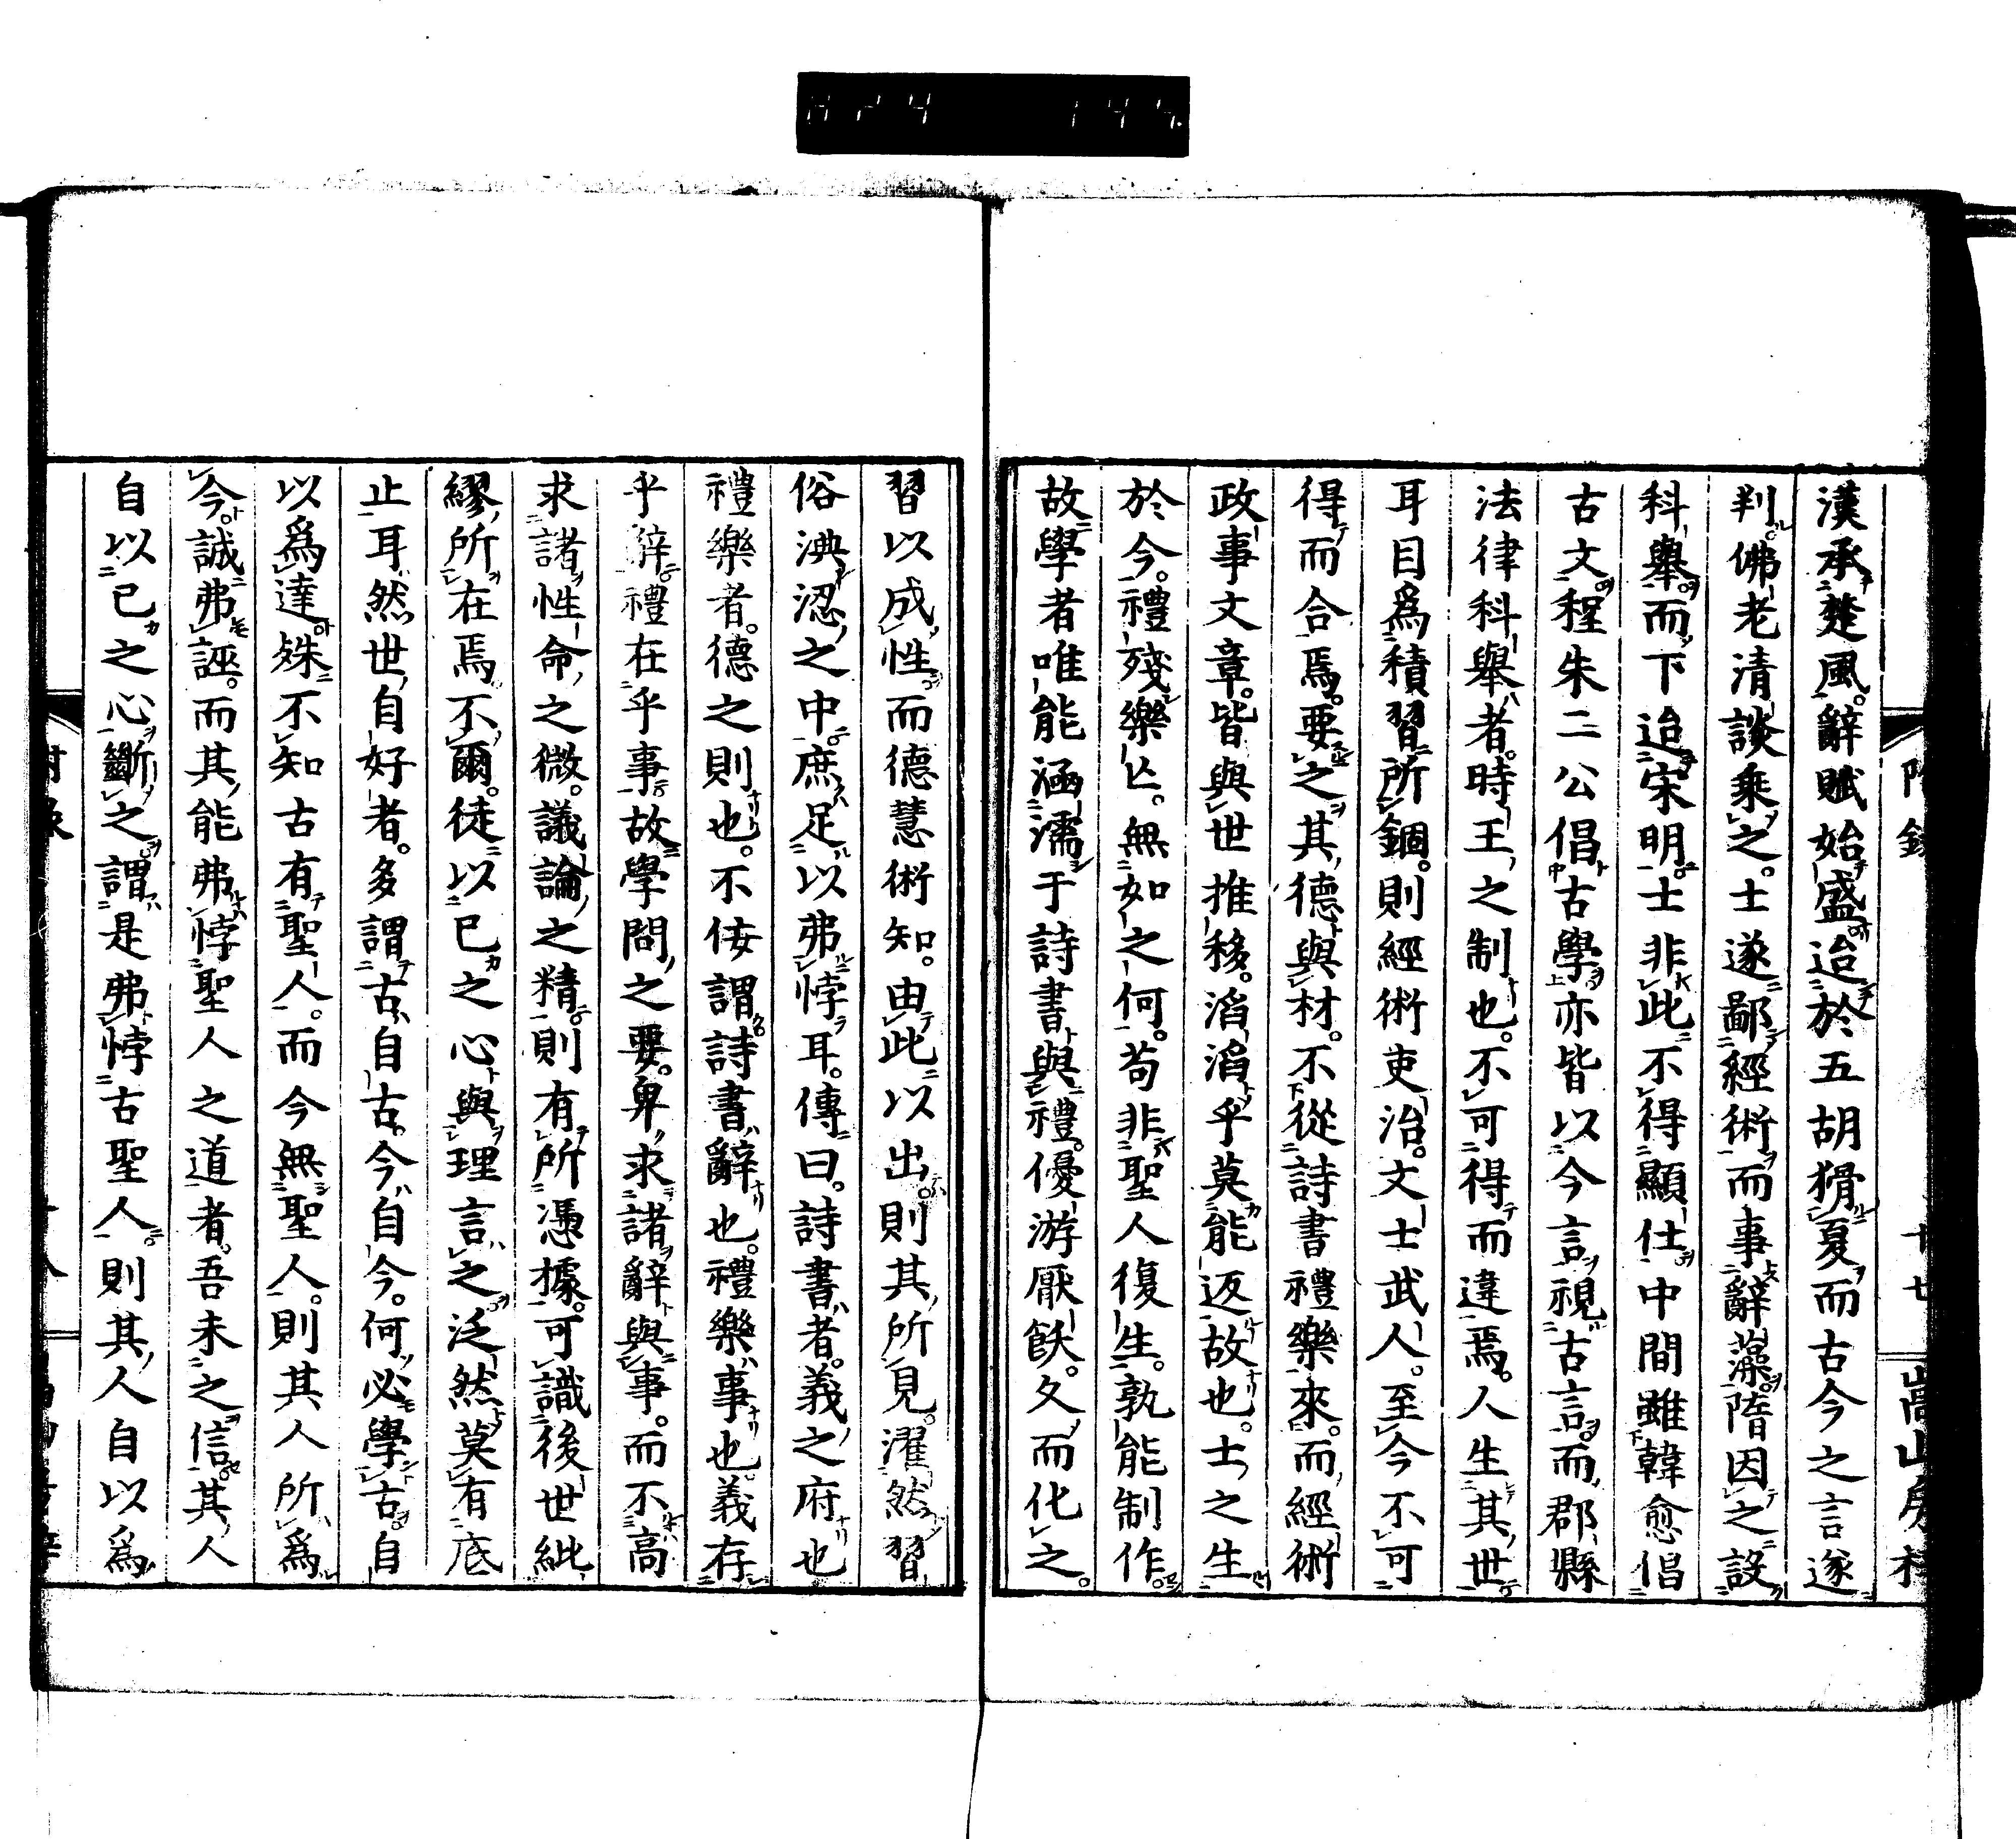 漢承楚風。辭賦始盛。迨於五胡猾夏。而古今之言遂
判。佛老清談乘之。士遂鄙經術而事辭藻。隋因之。設
科舉而下。迨宋明。士非此不得顯仕。中間雖韓愈倡
古文。程朱二公倡古學。亦皆以今言視古言。而郡縣
法律科舉者。時王之制也。不可得而違焉。人生其世。
耳目爲積習所錮。則經術吏治。文士武人。至今不可
得而合焉。要之其德與材。不從詩書禮樂來。而經術
政事文章。皆與世推移。滔滔乎莫能返故也。士之生
於今。禮殘樂亡。無如之何。苟非聖人復生。孰能制作。
故學者唯能涵濡于詩書與禮。優游厭飫。久而化之。
習以成性。而德慧術知。由此以出。則其所見。濯然習
俗淟涊之中。庶足以弗悖耳。傳曰。詩書者。義之府也
禮樂者。德之則也。不佞謂詩書辭也。禮樂事也。義存
乎辭。禮在乎事。故學問之要。卑求諸辭與事。而不高
求諸性命之微。議論之精。則有所憑據。可識後世紕
繆所在焉。不爾。徒以己之心與理言之。泛然莫有底
止耳。然世自好者。多謂古自古。今自今。何必學古。自
以爲達。殊不知古有聖人。而今無聖人。則其人所爲
今。誠弗誣。而其能弗悖聖人之道者。吾未之信。其人
自以己之心斷之。謂是弗悖古聖人。則其人自以爲